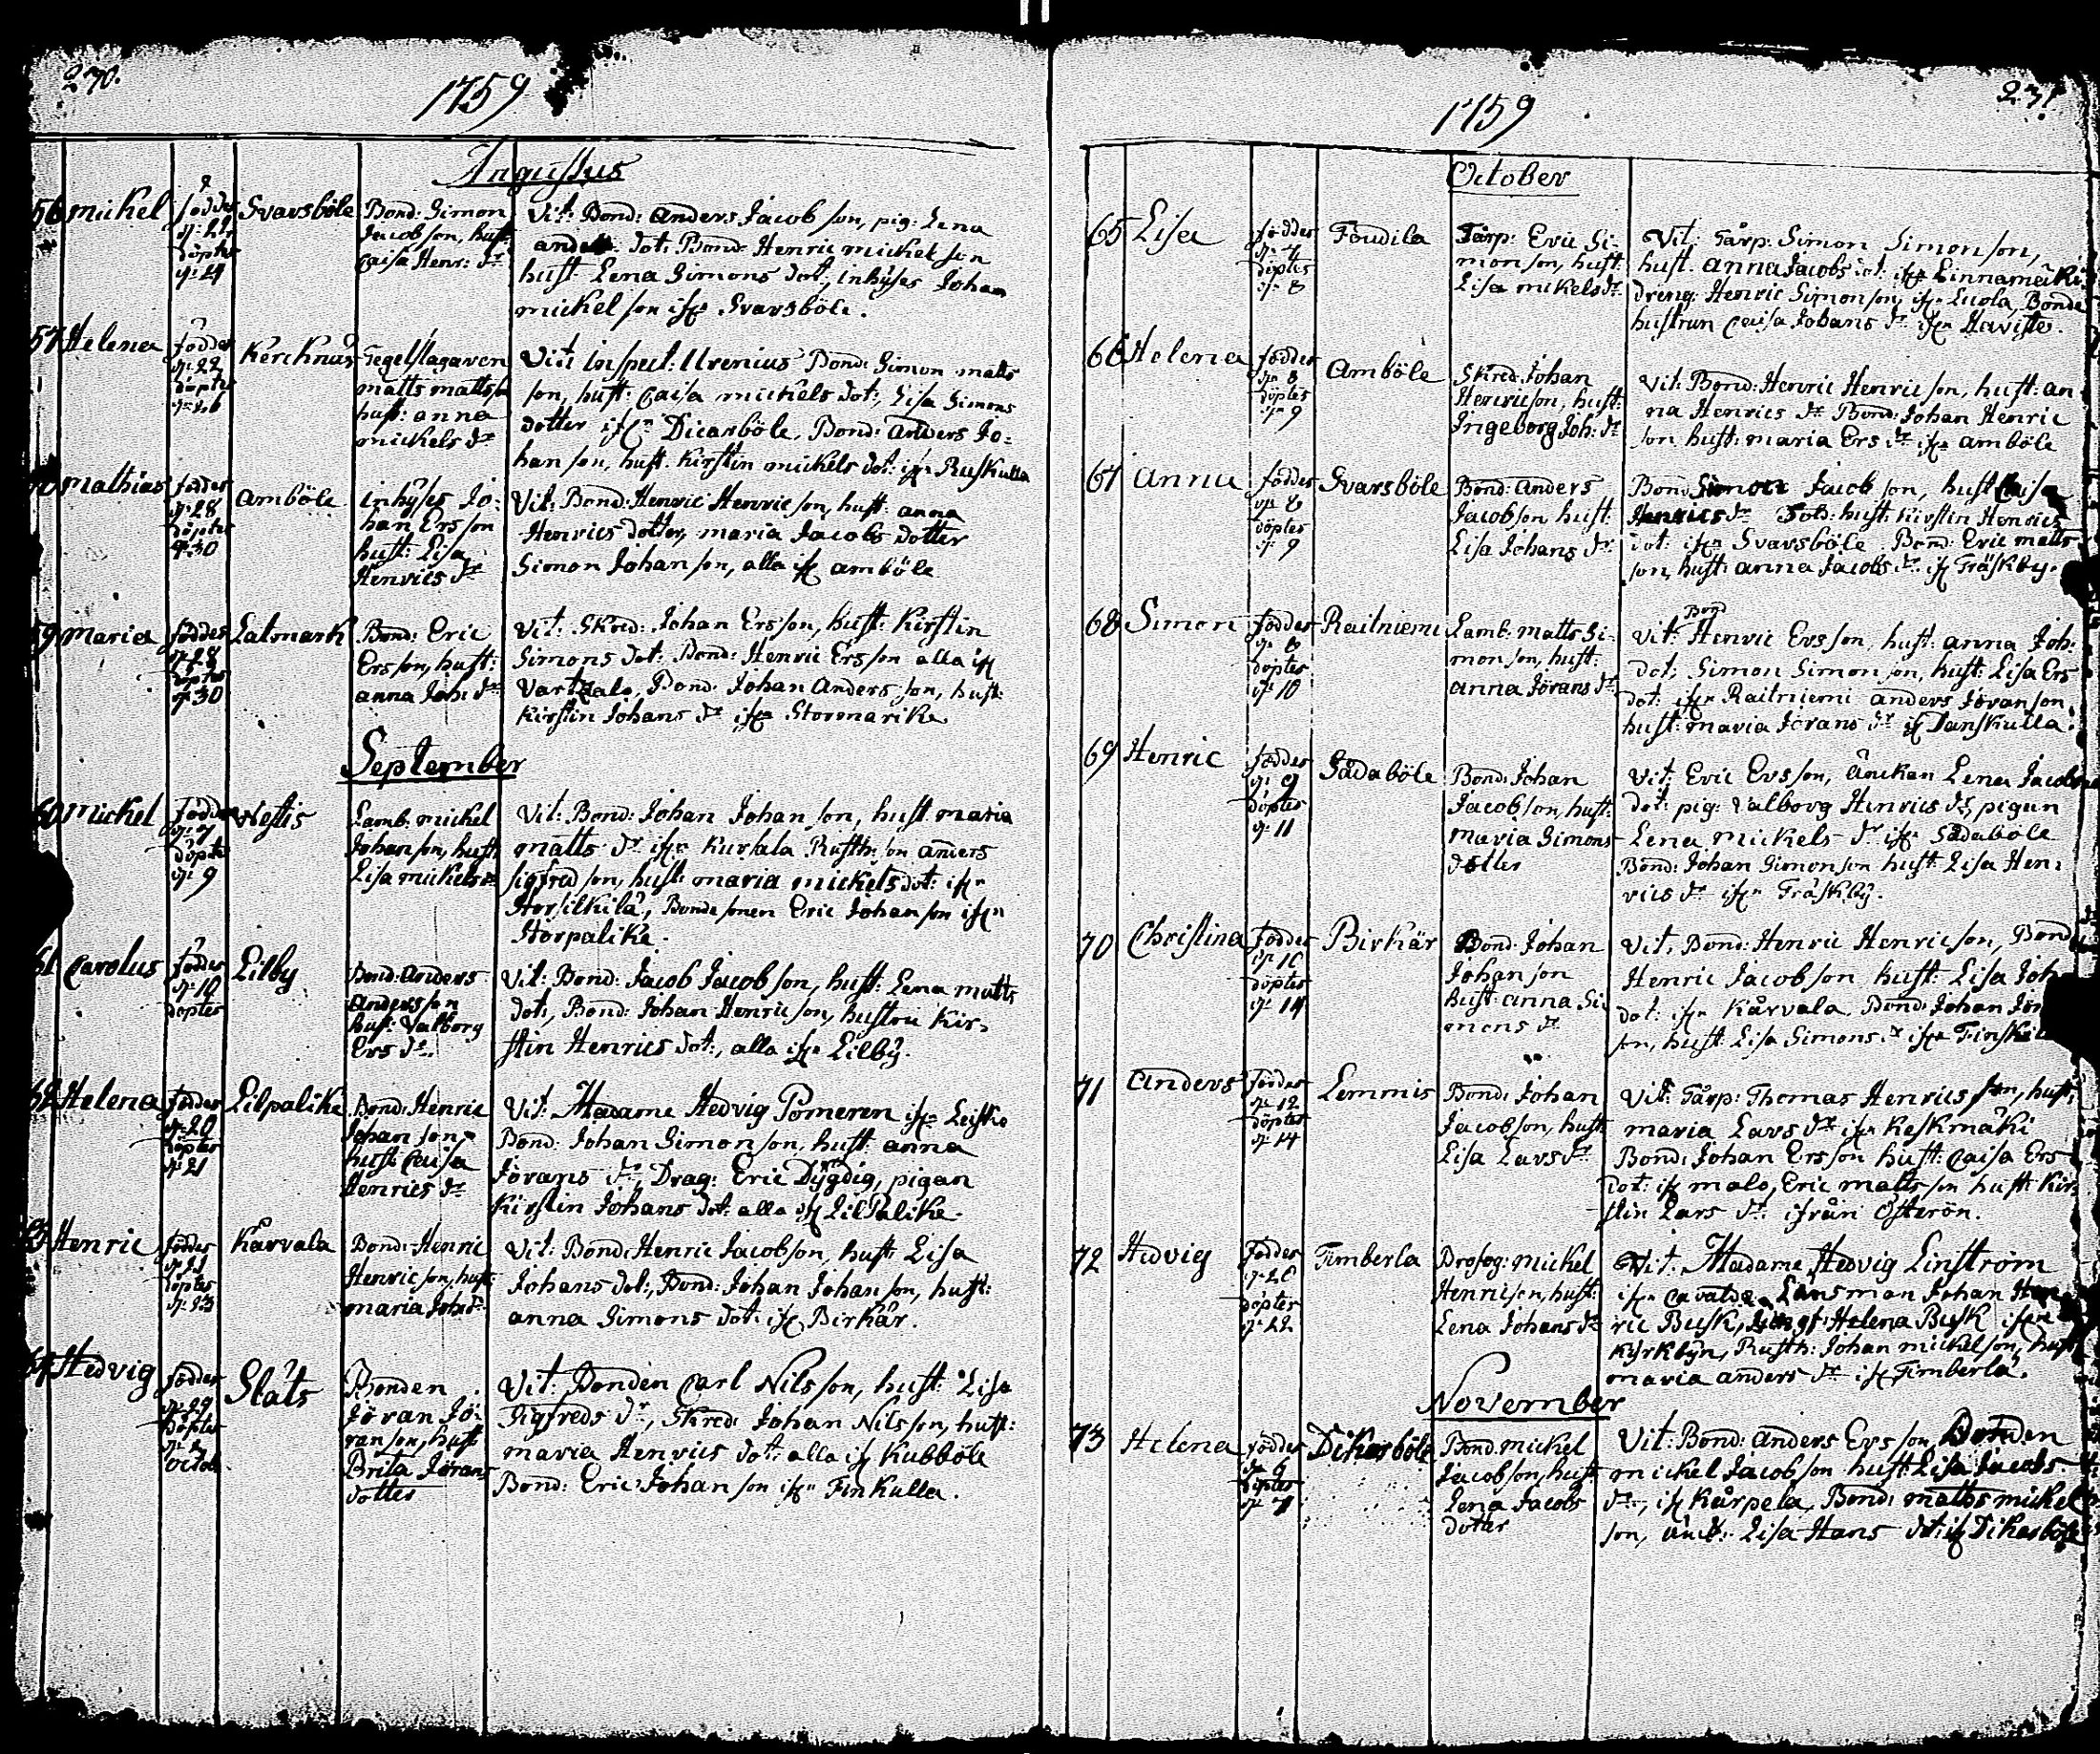 270.
1759
Augustus
56 Mickel
föddes
d: 21
döptes
d: 24
Svarsböle
Bond: Simon
Jacobson, hust:
Caisa Henr: dr
Vit: Bond: Anders Jacobson, pig: Lena
dot: Bond: Henric Mickelson
hust: Lena Simons dot:, inhyses Johan
Mickelson ifrn Svarsböle.
57 Helena
föddes
d: 22
döptes
d: 26
Kercknäs
Tegelslagaren
Matts Mattson
hust: Anna
Mickels dr
Vit: Inspect: Urenius Bond: Simon Matts
son, hust: Caisa Mickels dot:, Lisa Simons
dotter ifrn Dicarböle, Bond: Anders Jo:
hanson, hust. Kirstin Mickels dot: ifrn Ruskulla
Mathias
föddes
d: 28
döptes
d: 30
Amböle
inhyses Jo:
han Ersson
hust: Lisa
Henrics dr
Vit: Bond: Henric Henricson, hust: Anna
Henrics dotter, Maria Jacobs dotter
Simon Johanson, alla ifr Amböle
59 Maria
föddes
d: 28
döptes
d: 30
Latmark
Bond: Eric
Ersson, hust:
Anna Joh: dr
Vit: Skred: Johan Ersson, hust: Kirstin
Simons dot: Bond: Henric Ersson alla ifr
Vartsalo, Bond: Johan Anderson, hust:
Kirstin Johans dr ifrn Stormarike
September
60 Mickel
föddes
d: 7
döptes
d: 9
Nestis
Lamb: Mickel
Johanson, hust:
Lisa Mickels dr
Vit: Bond: Johan Johanson, hust Maria
Matts dr ifrn Kursala Rusth:son Anders
Sigfredson, hust: Maria Mickels dot: ifrn
Storsilkilä, Bondesonen Eric Johanson ifrn
Storpalike.
61 Carolus
föddes
döptes
Lilby
Bond: Anders
Andersson
hust: Valborg
Ers dr.
Vit: Bond: Jacob Jacobson, hust: Lena Matts
dot:, Bond: Johan Henricson, hustru Kir:
stin Henrics dot:, alla ifrn Lilby.
62 Helena
föddes
d: 20
döptes
d: 21
Lilpalike
Bond: Henric
Johanson
hust: Caisa
Henrics dr
Vit: Madame Hedvig Pomeren ifrn Leistio
Bond: Johan Simonson, hust: Anna
Jörans dr, Drag: Eric Dygdig, pigan
Kirstin Johans dot: alla ifr Lilpalike.
63 Henric
föddes
d: 21
döptes
d: 23
Kärvala
Bond: Henric
Henricson, hust:
Maria Joh: dr
Vit: Bond: Henric Jacobson, hust: Lisa
Johans dot:, Bond: Johan Johanson, hust:
Anna Simons dot: ifr Birkär.
64 Hedvig
föddes
d: 29
döptes
d: 1
Octob.
Släts
Bonden
Jöran Jö:
ranson, hust
Brita Jörans
dotter
Vit: Bonden Carl Nilsson, hust: Lisa
Sigfreds dr, Skred: Johan Nilsson, hust:
Maria Henrics dot: alla ifr Kubböle
Bond: Eric Johanson ifrn Finkulla.
271.
1759
October
65 Lisa
föddes
d: 4
döptes
d: 8
Foudila
Tårp: Eric Si:
monson, hust:
Lisa Mickels dr
Vit: Tårp: Simon Simonson,
hust. Anna Jacobs dot: ifrn Linnamäki
dreng: Henric Simonson, ifrn Luola, Bonde
hustrun Caisa Johans dr ifrn Haviste.
66 Helena
föddes
d: 8
döptes
d: 9
Amböle
Skred: Johan
Henricson, hust:
Ingeborg Joh: dr
Vit: Bond: Henric Henricson, hust: An
na Henrics dr Bond: Johan Henric
son hust: Maria Ers dr ifrn Amböle
67 Anna
föddes
d: 8
döptes
d: 9
Svarsböle
Bond: Anders
Jacobson hust:
Lisa Johans dr
Bond Simon Jacobson, hust Caisa
Henrics dr Sold: hust: Kirstin Henrics
dot: ifrn Svarsböle Bond: Eric Matts
son, hust: Anna Jacobs dr ifr Träskby.
68 Simon
föddes
d: 8
döptes
d: 10
Raitniemi
Lamb: Matts Si:
monson, hust:
Anna Jörans dr
Bond
Vit: Henric Ersson, hust: Anna Joh:
dot, Simon Simonson, hust: Lisa Ers
dot: ifrn Raitniemi Anders Joranson
hust: Maria Jörans dr ifr Danskulla.
69 Henric
föddes
d: 9
döptes
d: 11
Sådaböle
Bond: Johan
Jacobson, hust:
Maria Simons
dotter
Vit: Eric Ersson, Änckan Lena Jacobs
dot: pig: Valborg Henrics dr, pigan
Lena Mickels dr ifrn Sådaböle
Bond: Johan Simonson hust: Lisa Hen:
rics dr ifrn Träskby.
70 Christina
föddes
d: 10
döptes
d: 14
Birkär
Bond: Johan
Johanson
hust: Anna Si:
mons dr
Vit, Bond: Henric Henricson, Bond
Henric Jacobson hust: Lisa Joh
dot: ifrn Kärvala, Bond: Johan Jör
son, hust: Lisa Simons dr ifrn
71 Anders
föddes
d: 12
döptes
d: 14
Lemmis
Bond: Johan
Jacobson, hust:
Lisa Lars dr
Vit: Tårp: Thomas Henricsson, hust:
Maria Lars dr ifrn Keskmäki
Bond: Johan Ersson hust: Caisa Ers
dot: ifr Malo, Eric Mattsson hust Kir
stin Lars dr ifrån Österön.
72 Hedvig
föddes
d: 20
döptes
d: 22
Timberla
Drofog: Mickel
Henricson, hust:
Lena Johans dr
Vit: Madame Hedvig Linström
ifrn Cavalda, Länsman Johan Hen
ric Busk, Jungf: Helena Busk ifrn
Kyrkbyn, Rusth: Johan Mickelson, hust
Maria Anders dr ifr Timberla.
November
73 Helena
föddes
d: 6
döptes
d: 7
Dikarböle
Bond: Mickel
Jacobson, hust
Lena Jacobs
dotter
Vit: Bond: Anders Ersson, Bonden
Mickel Jacobson hust: Lisa Jacobs
dr, ifr Kärpela, Bond: Matts Mickel
son, Änck: Lisa Hans dot: ifr Dikarböle